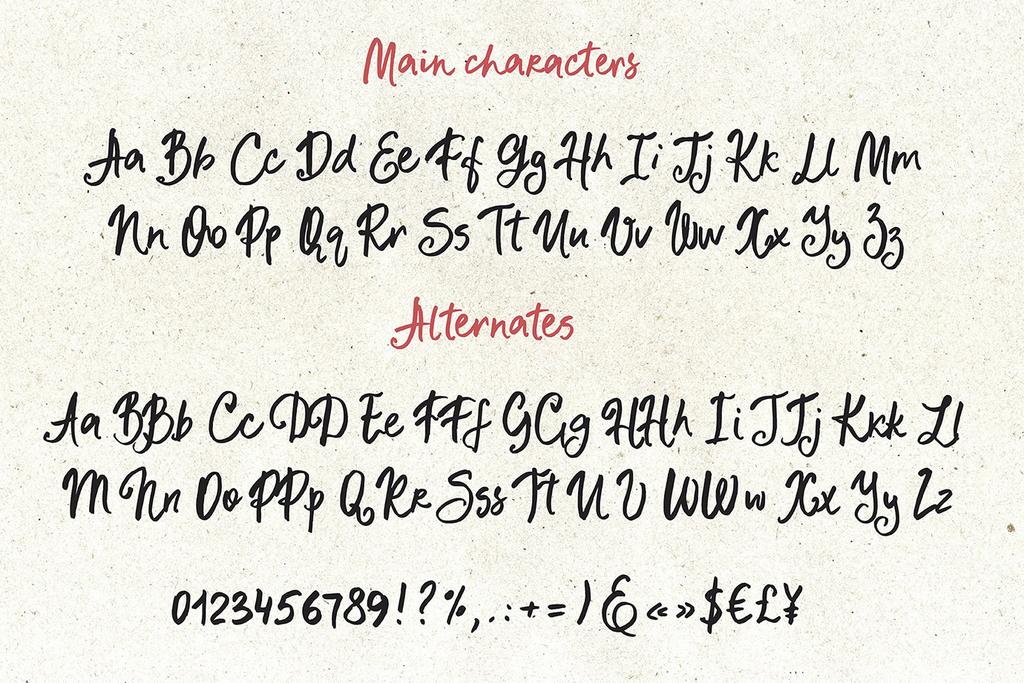 Main characters
Aa Bb Cc Dd Ee Ff Gg Hh Ii Jj Kk Ll Mm
Nn Oo Pp Qq Rr Ss Tt Uu Vv Ww Xx Yy Zz
Alternates
Aa BBb Cc DD Ee FFf GGg HHh Ii JJj Kkk Ll
M Nn Oo PPp Q Rr Sss Tt U V WWw Xx Yy Zz
0123456789!?%,.:+=)&«»$€£¥